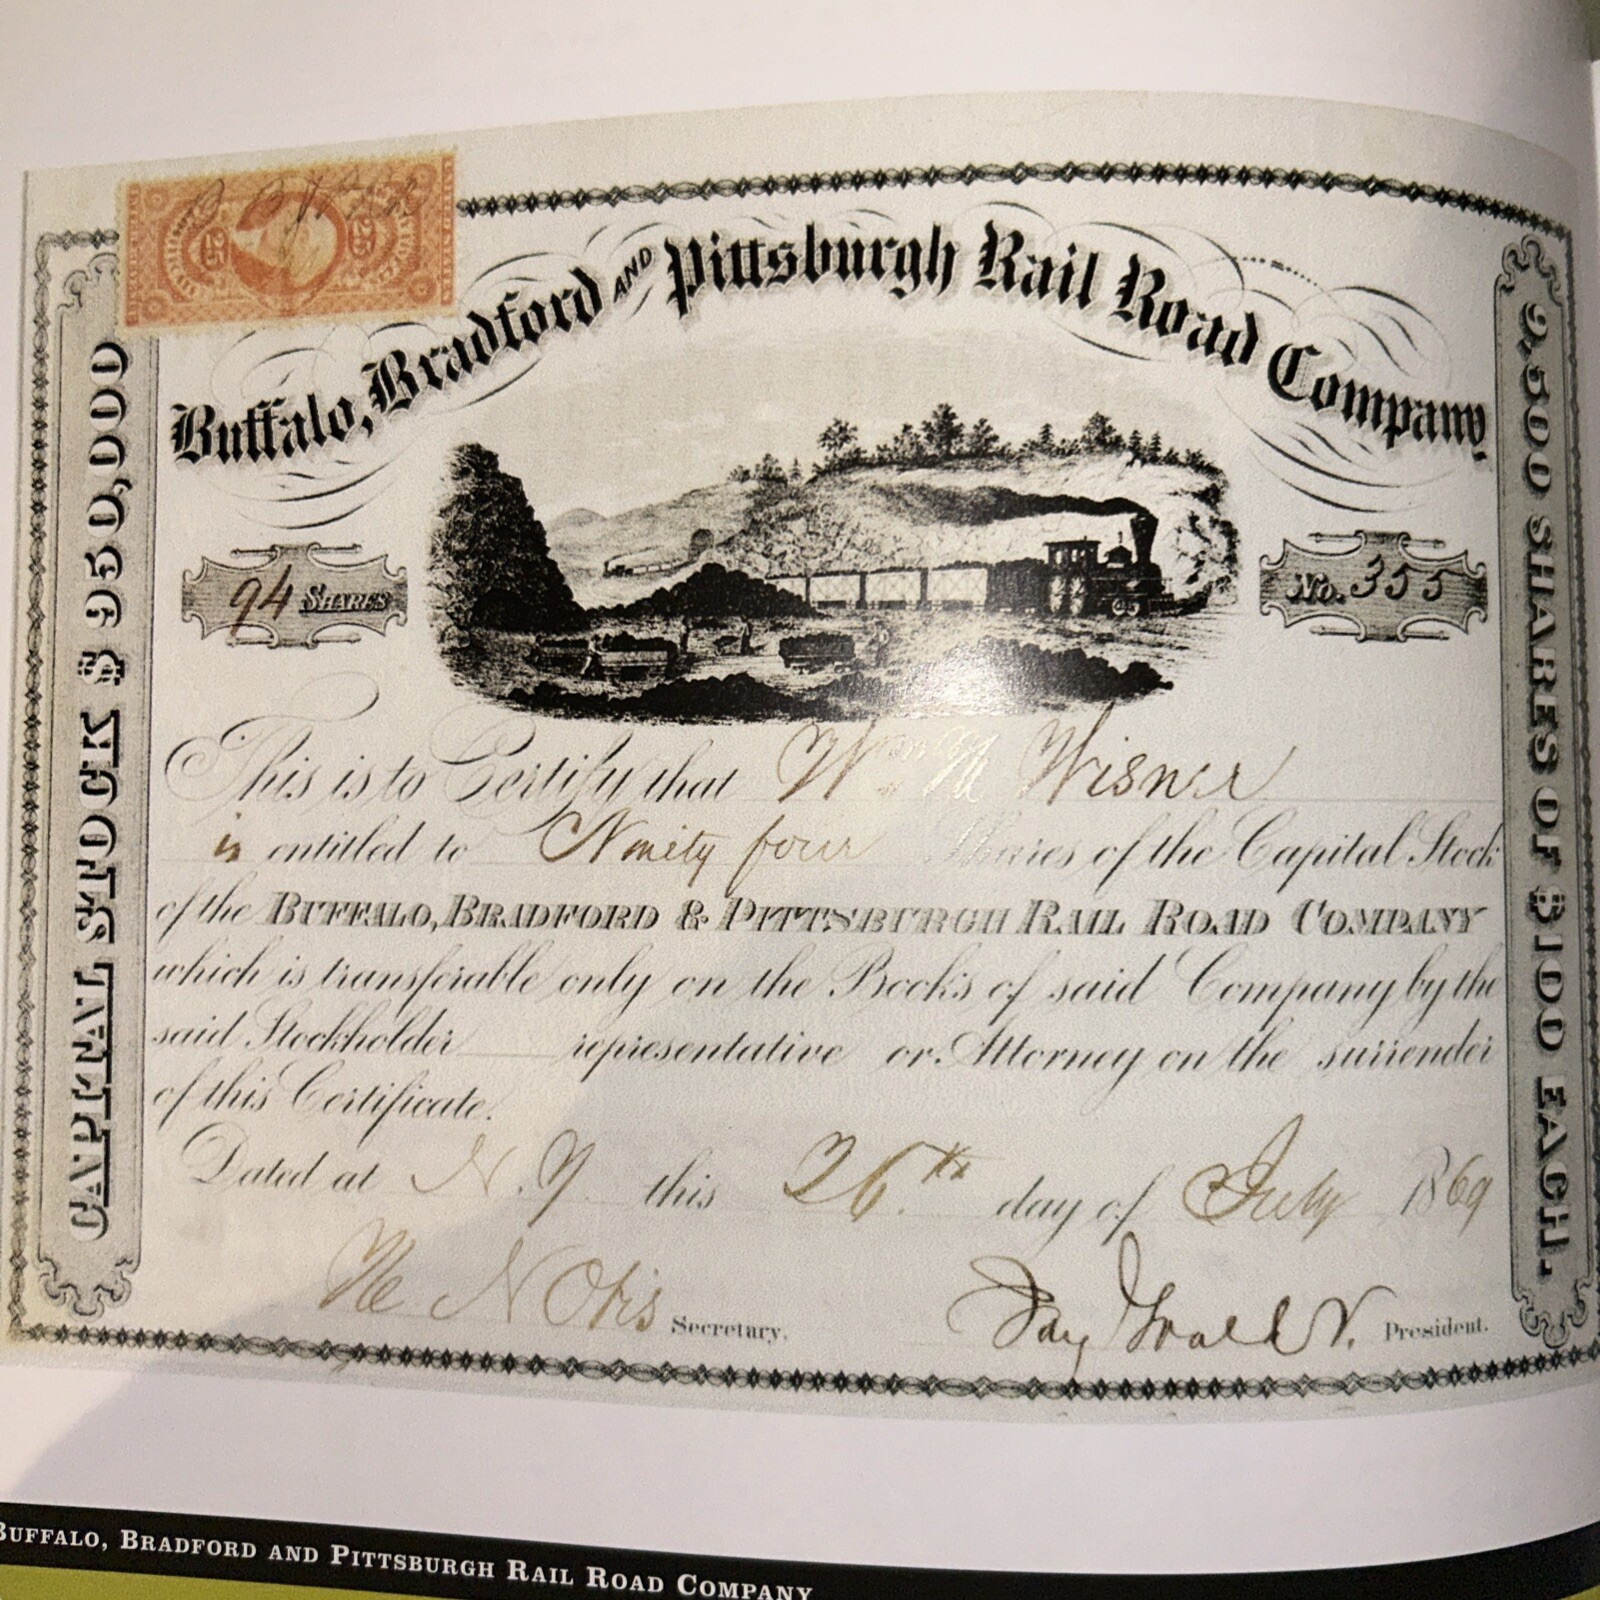 25 25
Buffalo, Bradford AND Pittsburgh Rail Road Company,
CAPITAL STOCK $950,000
9,500 SHARES OF $100 EACH.
94 SHARES
No. 355
This is to Certify that Wm M Wisner
is entitled to Ninety four Shares of the Capital Stock
of the BUFFALO, BRADFORD & PITTSBURGH RAIL ROAD COMPANY
which is transferable only on the Books of said Company by the
said Stockholder representative or Attorney on the surrender
of this Certificate.
Dated at N.Y. this 26th day of July 1869
H N Otis Secretary.
Jay Gould Pr. President.
BUFFALO, BRADFORD AND PITTSBURGH RAIL ROAD COMPANY